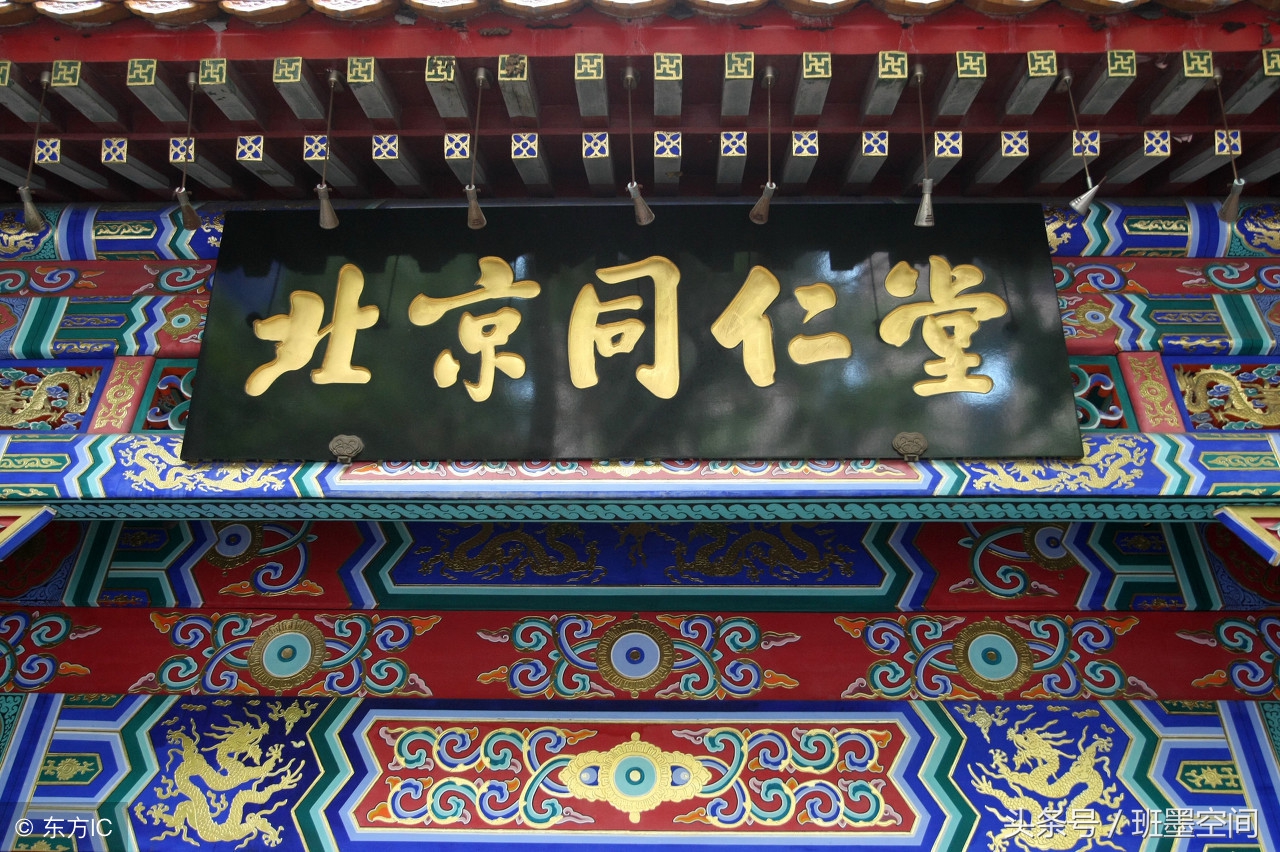 北京同仁堂
© 东方IC
头条号 / 班墨空间